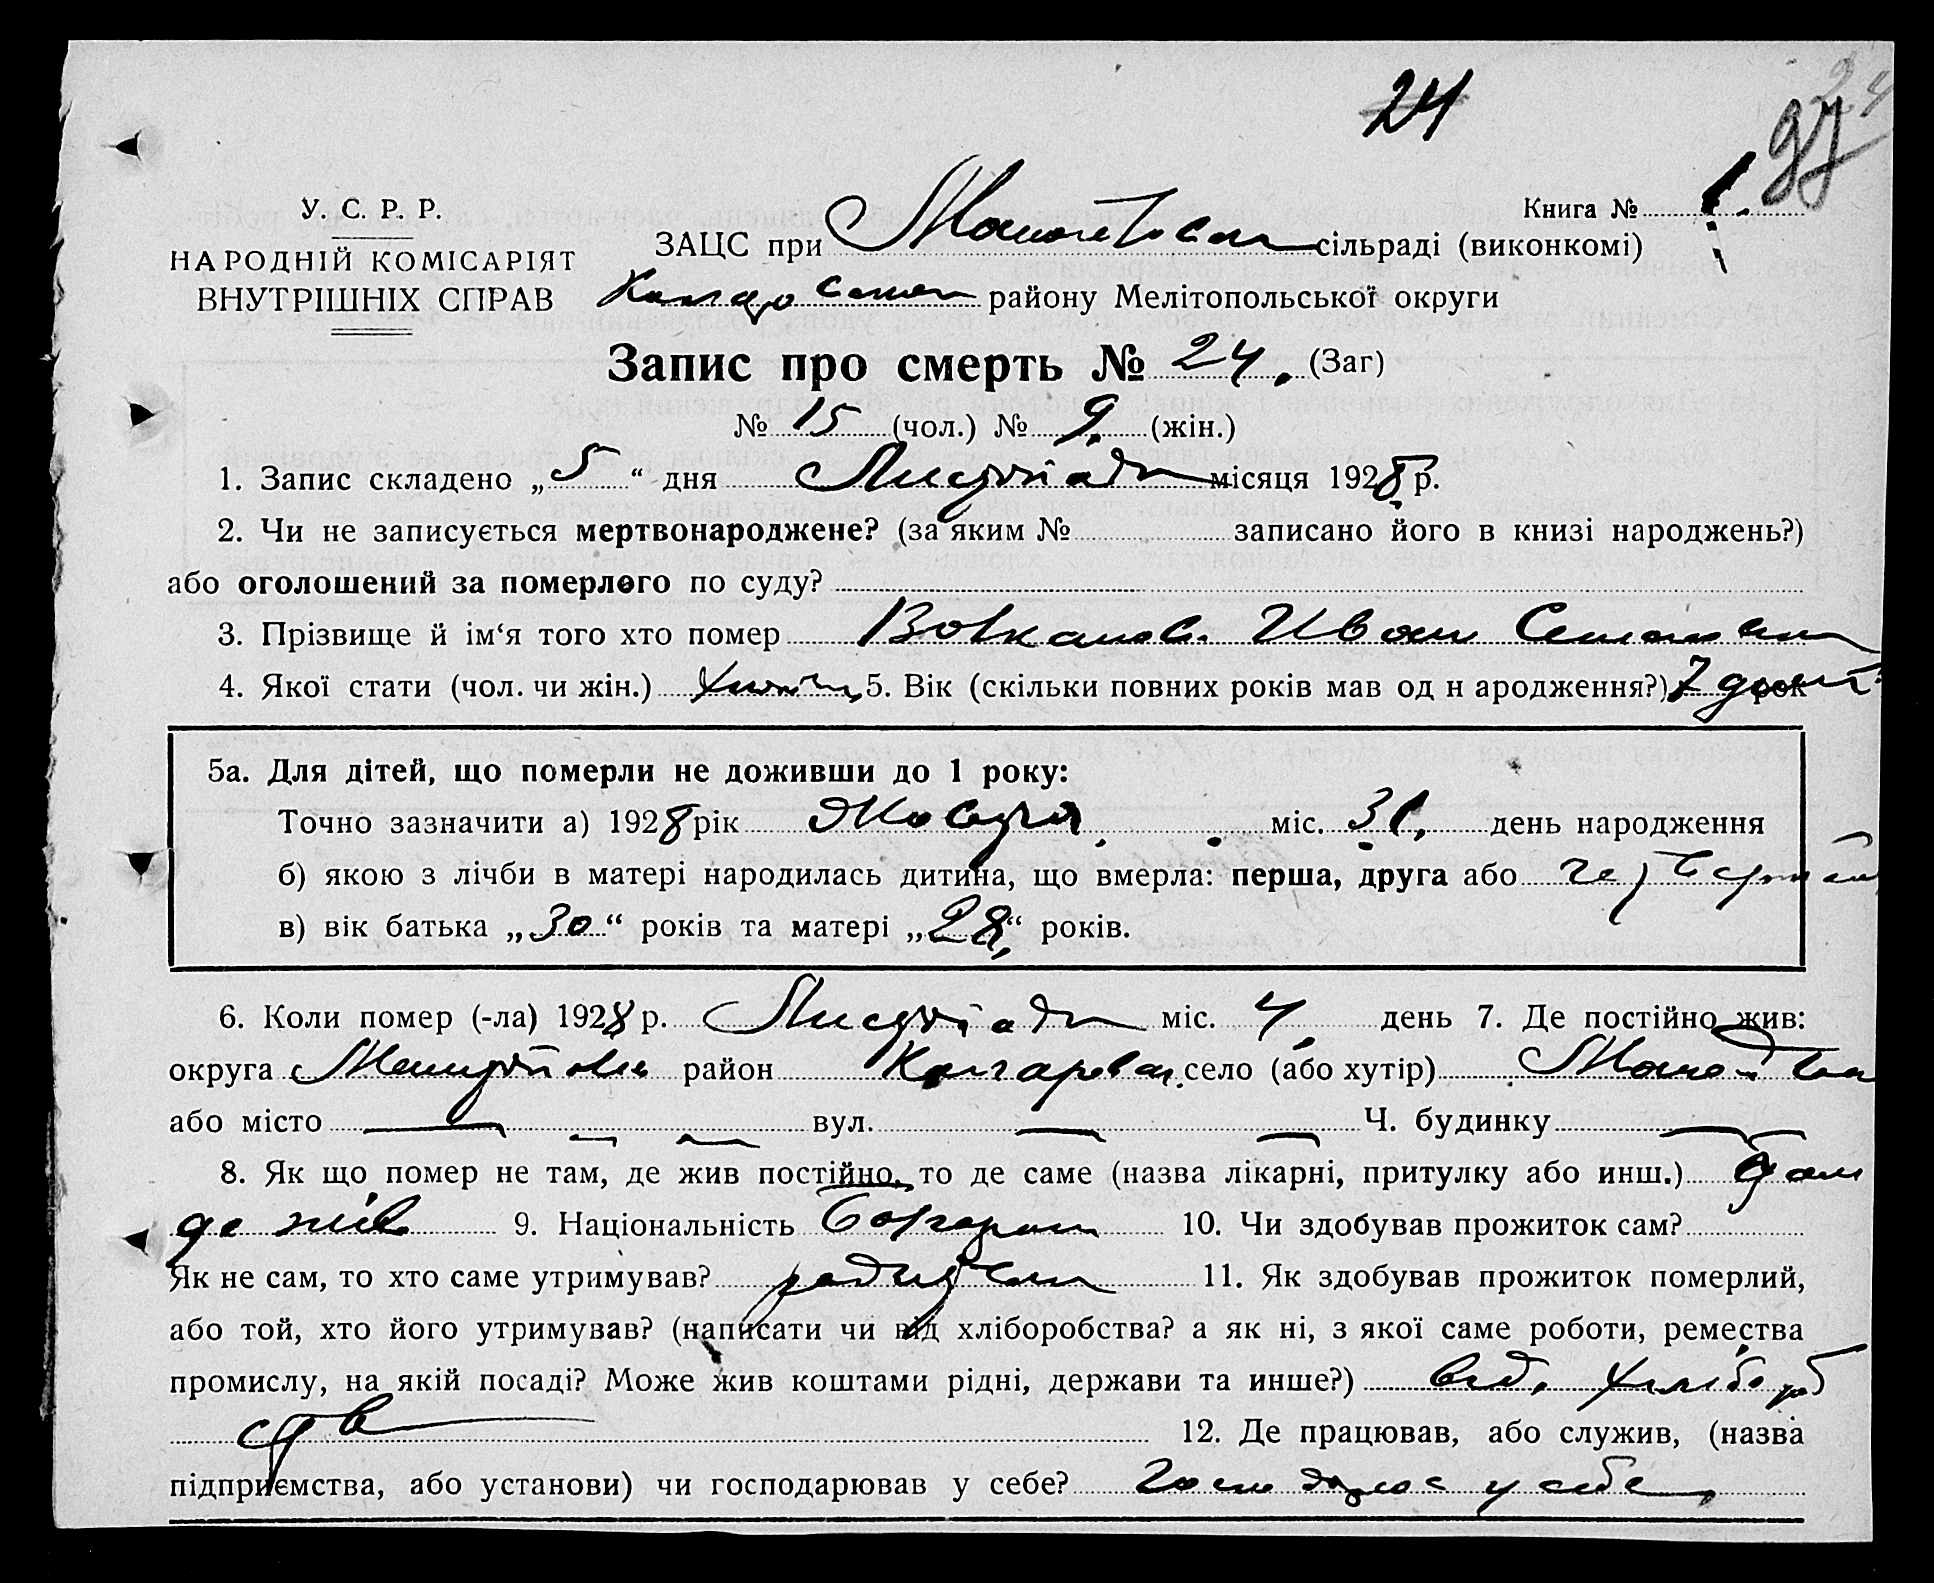 24
24
97
У. С. Р. Р.
Книга № 1.
НАРОДНІЙ КОМІСАРІЯТ
ВНУТРІШНІХ СПРАВ
ЗАЦС при сільраді (виконкомі)
району Мелітопольської округи
Запис про смерть № 24. (Заг)
№ 15 (чол.) № 9. (жін.)
1. Запис складено „5“ дня Листопада місяця 1928 р.
2. Чи не записується мертвонароджене? (за яким № записано його в книзі народжень?)
або оголошений за померлого по суду?
3. Прізвище й ім‘я того хто помер Волканов Иван
4. Якої стати (чол. чи жін.) 5. Вік (скільки повних років мав од н ародження?) 7 рок
5а. Для дітей, що померли не доживши до 1 року:
Точно зазначити а) 1928 рік Жовтня міс. 31. день народження
б) якою з лічби в матері народилась дитина, що вмерла: перша, друга або
в) вік батька „30“ років та матері „28“ років.
6. Коли помер (-ла) 1928 р. Листопада міс. 4 день 7. Де постійно жив:
округа район село (або хутір)
або місто — вул. — Ч. будинку —
8. Як що помер не там, де жив постійно, то де саме (назва лікарні, притулку або инш.) там
де жив 9. Національність 10. Чи здобував прожиток сам?
Як не сам, то хто саме утримував? 11. Як здобував прожиток померлий,
або той, хто його утримував? (написати чи від хліборобства? а як ні, з якої саме роботи, ремества
промислу, на якій посаді? Може жив коштами рідні, держави та инше?) від. хлібороб
ств 12. Де працював, або служив, (назва
підприємства, або установи) чи господарював у себе? у себе